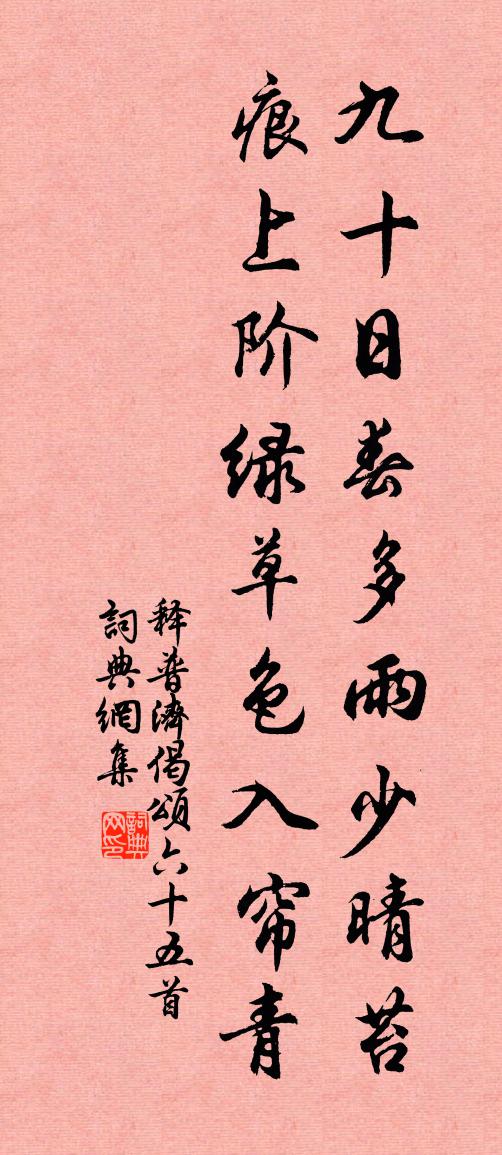 九十日春多雨少晴苔
痕上阶绿草色入帘青
释普濟偈頌六十五首
詞典網集
詞典网印